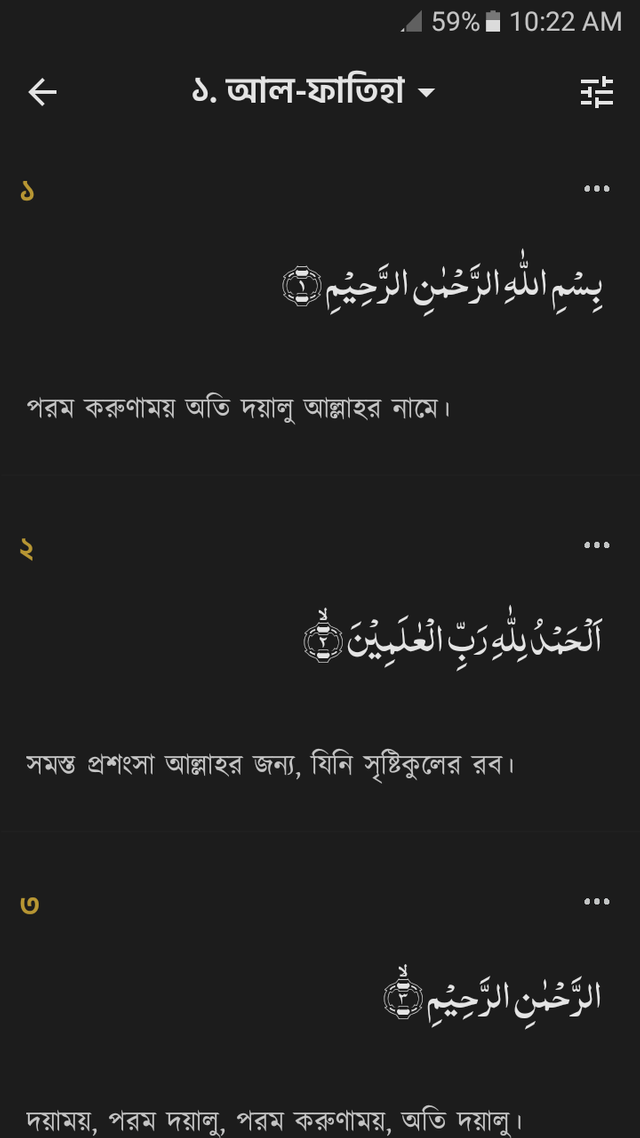 59% 10:22 AM
১. আল-ফাতিহা
১
بِسْمِ اللّٰهِ الرَّحْمٰنِ الرَّحِيْمِ ١
পরম করুণাময় অতি দয়ালু আল্লাহর নামে।
২
اَلْحَمْدُ لِلّٰهِ رَبِّ الْعٰلَمِيْنَ ۙ ٢
সমস্ত প্রশংসা আল্লাহর জন্য, যিনি সৃষ্টিকুলের রব।
৩
الرَّحْمٰنِ الرَّحِيْمِ ۙ ٣
দয়াময়, পরম দয়ালু, পরম করুণাময়, অতি দয়ালু।